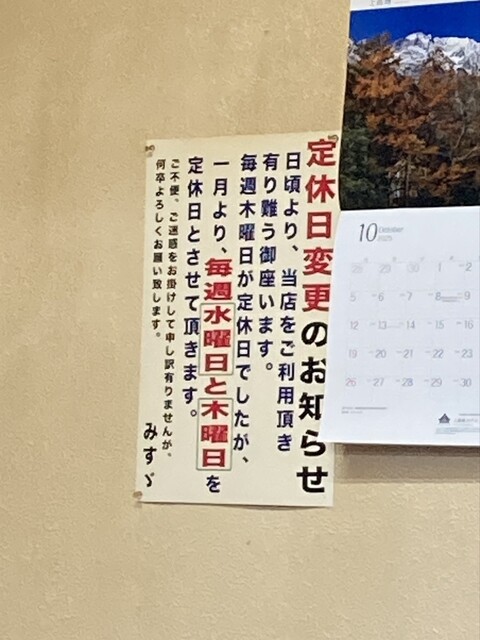 定休日変更のお知らせ
日頃より、当店をご利用頂き
有り難う御座います。
毎週木曜日が定休日でしたが、
一月より、毎週水曜日と木曜日を
定休日とさせて頂きます。
ご不便、ご迷惑をお掛けして申し訳有りませんが、
何卒よろしくお願い致します。
みすゞ
10 October
2025
28 29 30 1 2
5 6 7 8 9
12 13 14 15 16
19 20 21 22 23
26 27 28 29 30